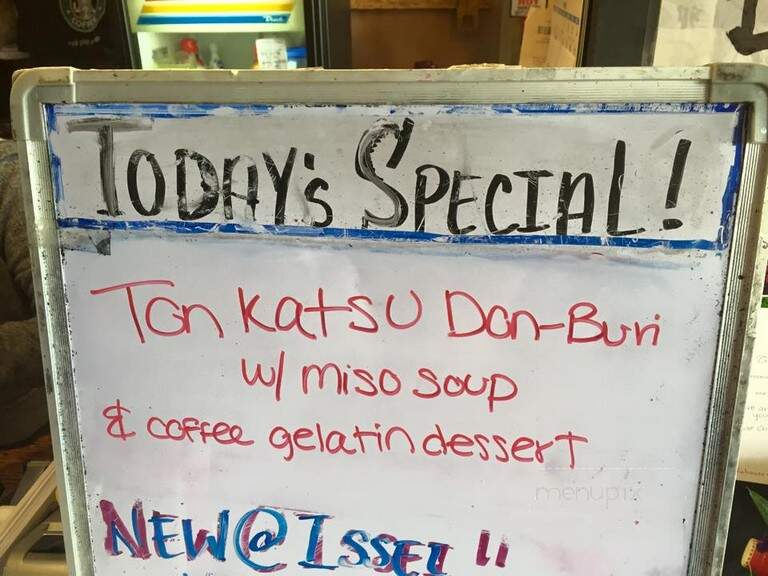 TODAY's SPECIAL!
Ton Katsu Don-Buri
w/ miso soup
& coffee gelatin dessert
menupix
NEW@ISSEI !!